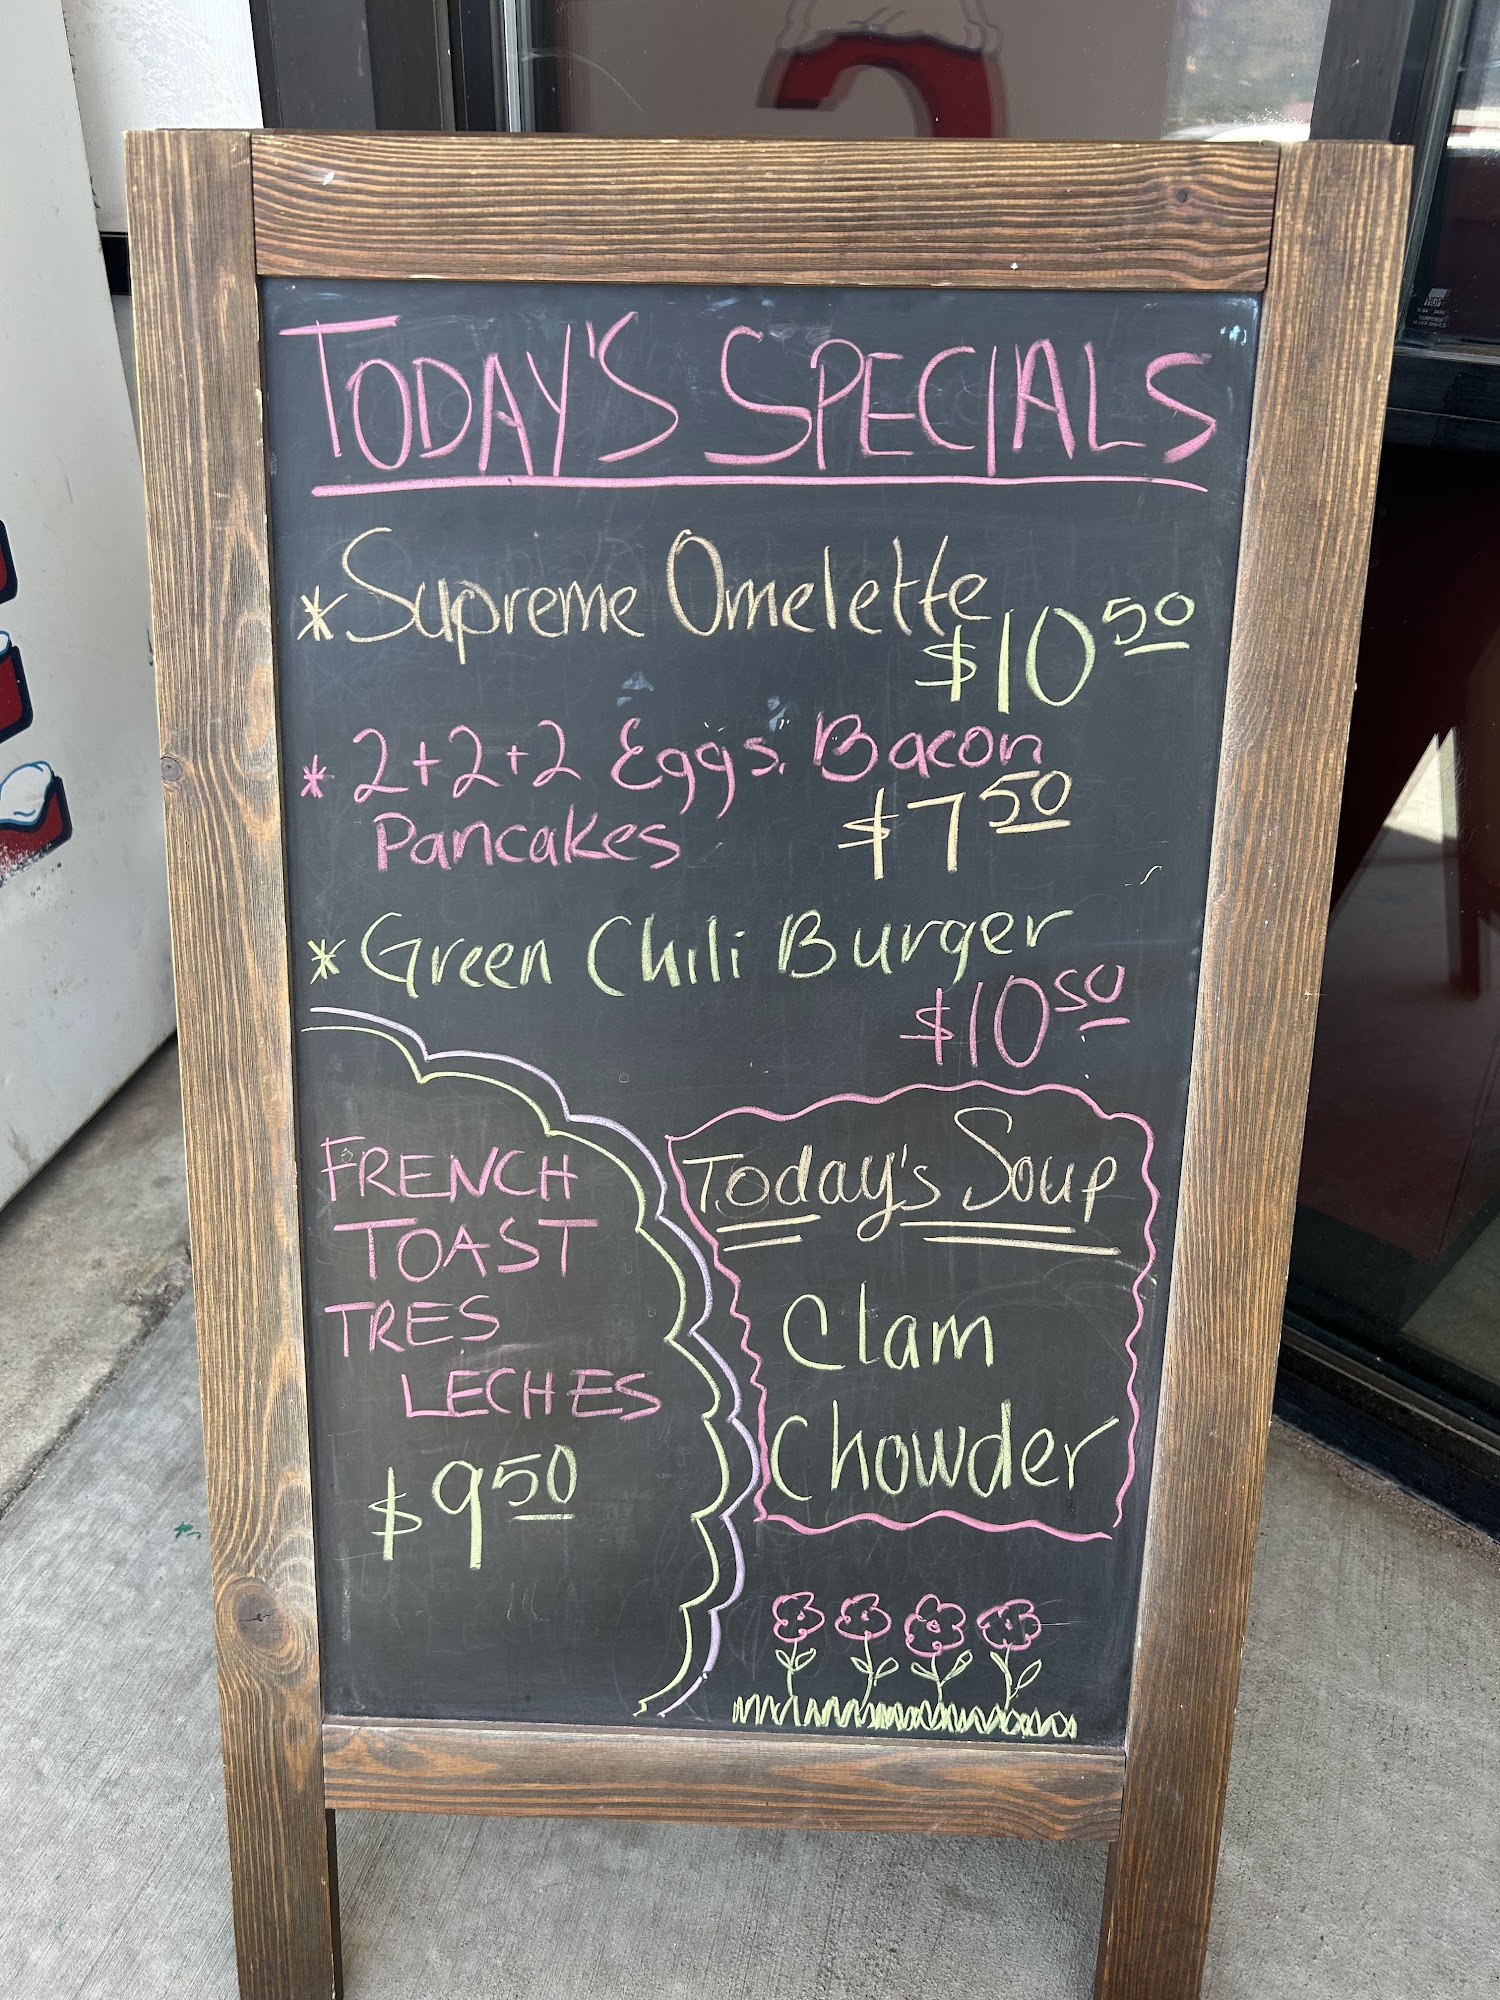 TODAY'S SPECIALS
* Supreme Omelette
$10 50
* 2+2+2 Eggs, Bacon
Pancakes $7 50
* Green Chili Burger
$10 50
FRENCH
TOAST
TRES
LECHES
$9 50
Today's Soup
Clam
Chowder